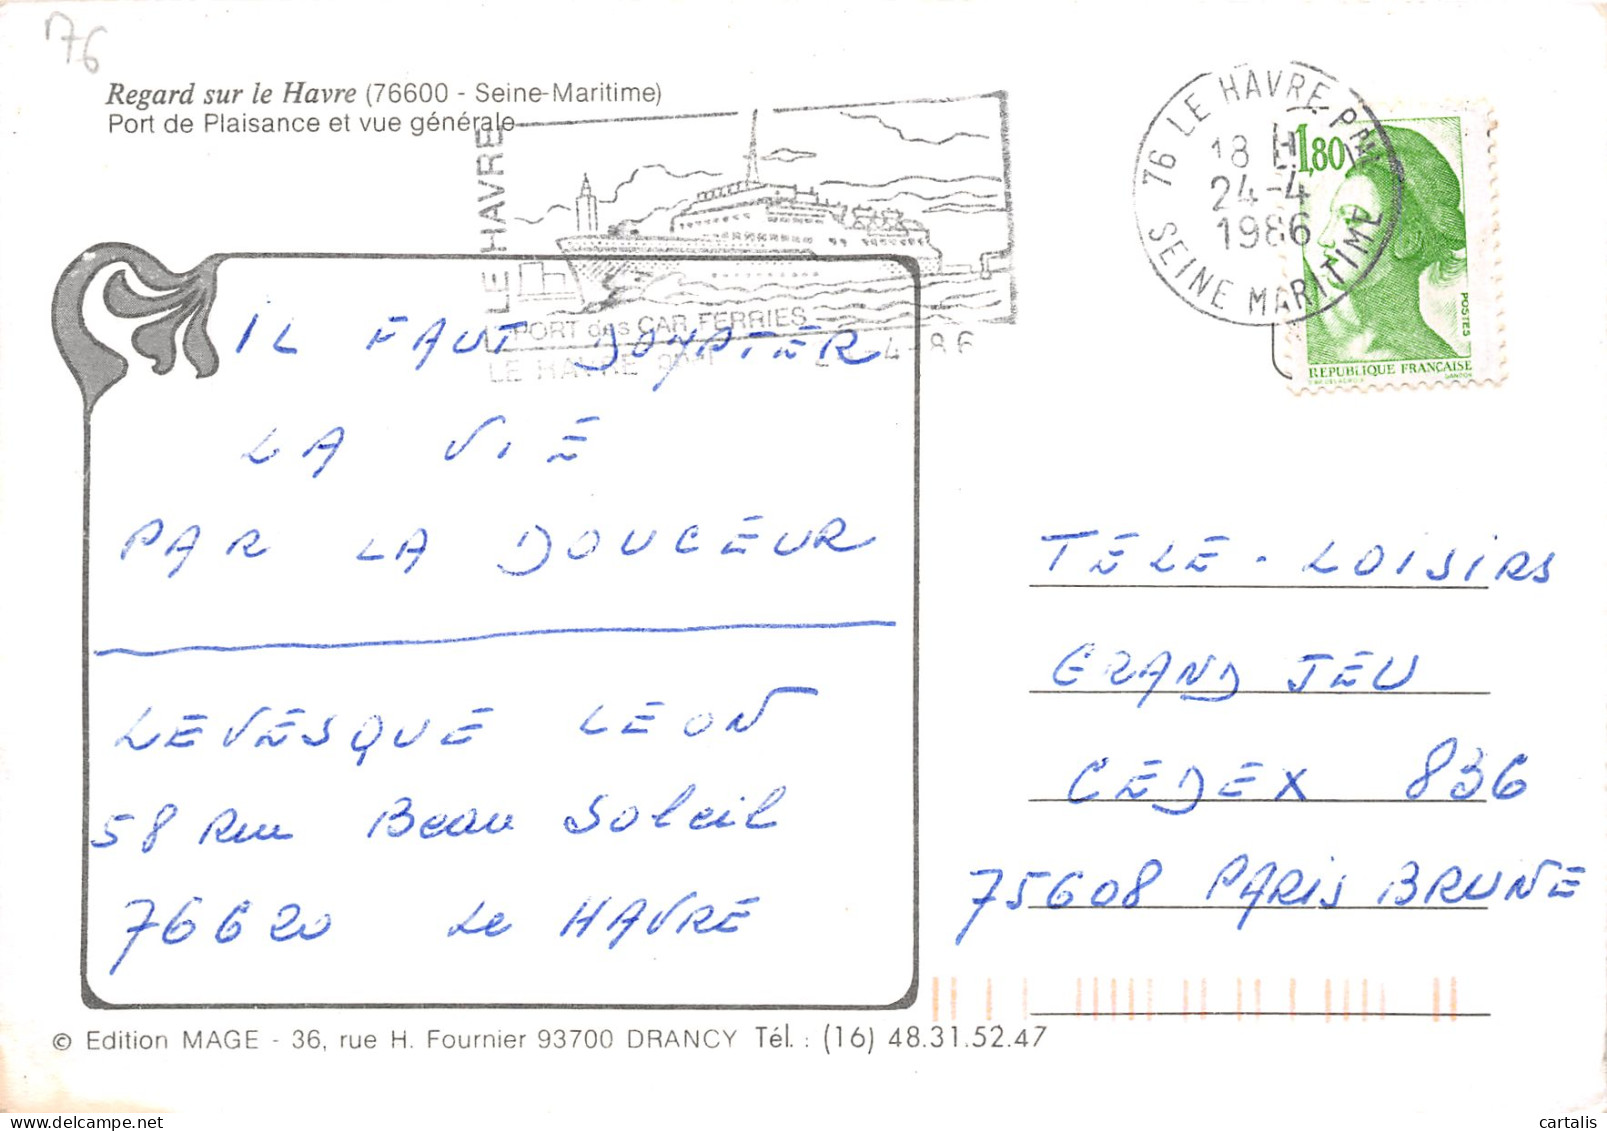 76
Regard sur le Havre (76600 - Seine-Maritime)
Port de Plaisance et vue générale
LE HAVRE
PORT des CAR FERRIES
LE HAVRE
4-86
76 LE HAVRE PPAL
18 H
24-4
1986
SEINE MARITIME
1,80
POSTES
REPUBLIQUE FRANÇAISE
GANDON
IL FAUT DOMPTER
LA VIE
PAR LA DOUCEUR
LEVESQUE LEON
58 Rue Beau Soleil
76620 Le HAVRE
TELE - LOISIRS
GRAND JEU
CEDEX 836
75608 PARIS BRUNE
© Edition MAGE - 36, rue H. Fournier 93700 DRANCY Tél. : (16) 48.31.52.47
cartalis